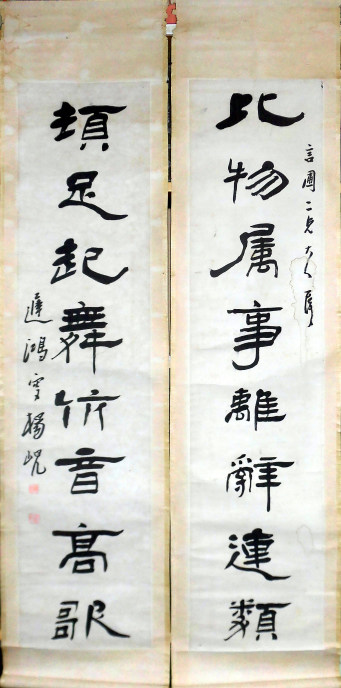 比物属事離辭連類
言圃二兄大人屬
頓足起舞伉音高歌
遲鴻叟楊峴